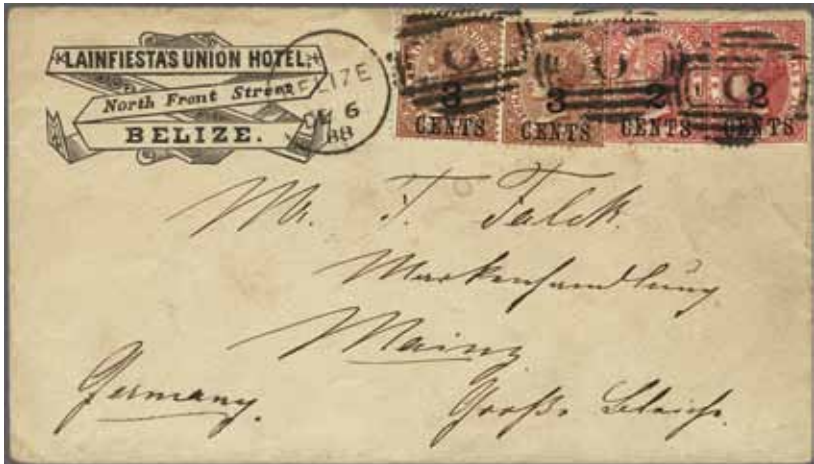 LAINFIESTA'S UNION HOTEL,
North Front Street
BELIZE.
BELIZE
6
88
3 CENTS
3 CENTS
2 CENTS
2 CENTS
Mr. F. Falck.
Markenhandlung
Mainz
Germany.
Große Bleiche.